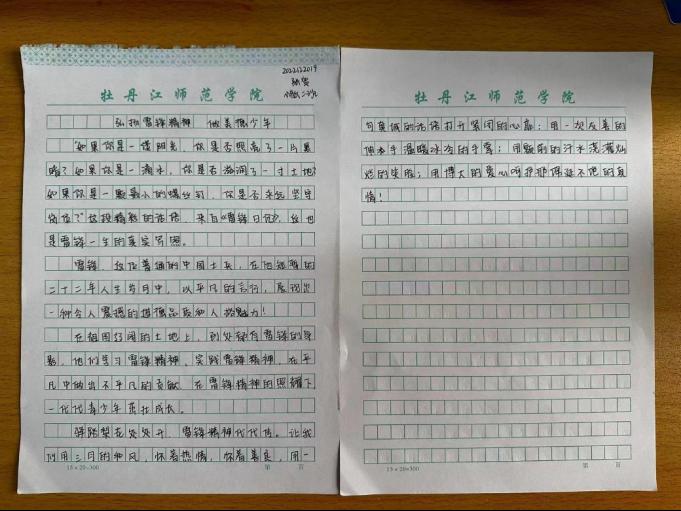 牡丹江师范学院
弘扬雷锋精神 做美德少年
"如果你是一缕阳光，你是否照亮了一片黑
暗？如果你是一滴水，你是否滋润了一寸土地？
如果你是一颗最小的螺丝钉，你是否永远坚守
岗位？"这段精彩的话语，来自《雷锋日记》，这也
是雷锋一生的真实写照。
雷锋，这位普通的中国士兵，在
二十二年人生岁月中，以平凡的言行，展现出
一种令人震撼的道德品质和人格魅力！
在祖国辽阔的土地上，到处都有雷锋的身
影，他们学习雷锋精神，实践雷锋精神，在平
凡中做出不平凡的贡献，在雷锋精神的照耀下
一代代青少年茁壮成长。
驿路梨花处处开，雷锋精神代代传。让我
们用三月的和风，怀着热情，怀着善良，用一
15×20=300
第 页
牡丹江师范学院
句真诚的话语打开紧闭的心扉；用一次友善的
伸手温暖冰冷的手掌；用晶莹的汗水浇灌灿
烂的笑脸；用博大的爱心呵护那保延不息的真
情！
15×20=300
第 页